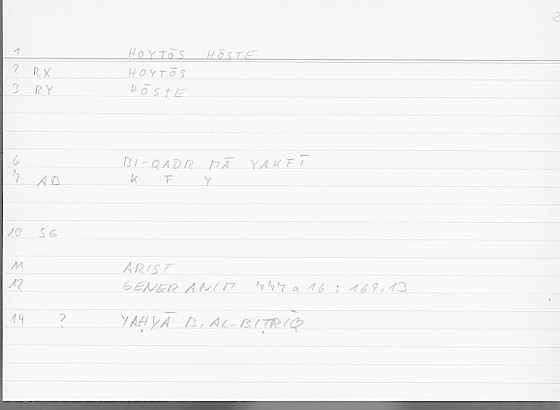 1 HOYTŌS HŌSTE
2 RX HOYTŌS
3 RY HŌSTE
6 BI-QADR MĀ YAKFĪ
7 AB K F Y
10 SG
11 ARIST
12 GENER ANIM 777 a 16 : 169.13
14 ? YAḤYĀ B. AL-BIṬRĪQ